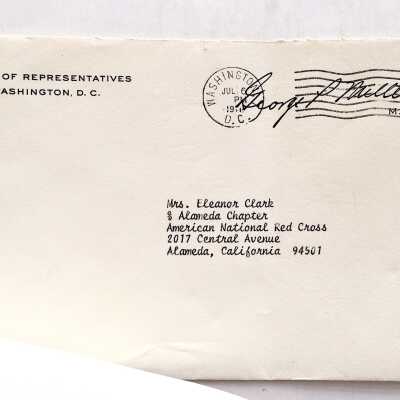 OF REPRESENTATIVES
WASHINGTON, D. C.
WASHINGTON
JUL 6
PM
D.C.
George P.
M.
Mrs. Eleanor Clark
% Alameda Chapter
American National Red Cross
2017 Central Avenue
Alameda, California 94501